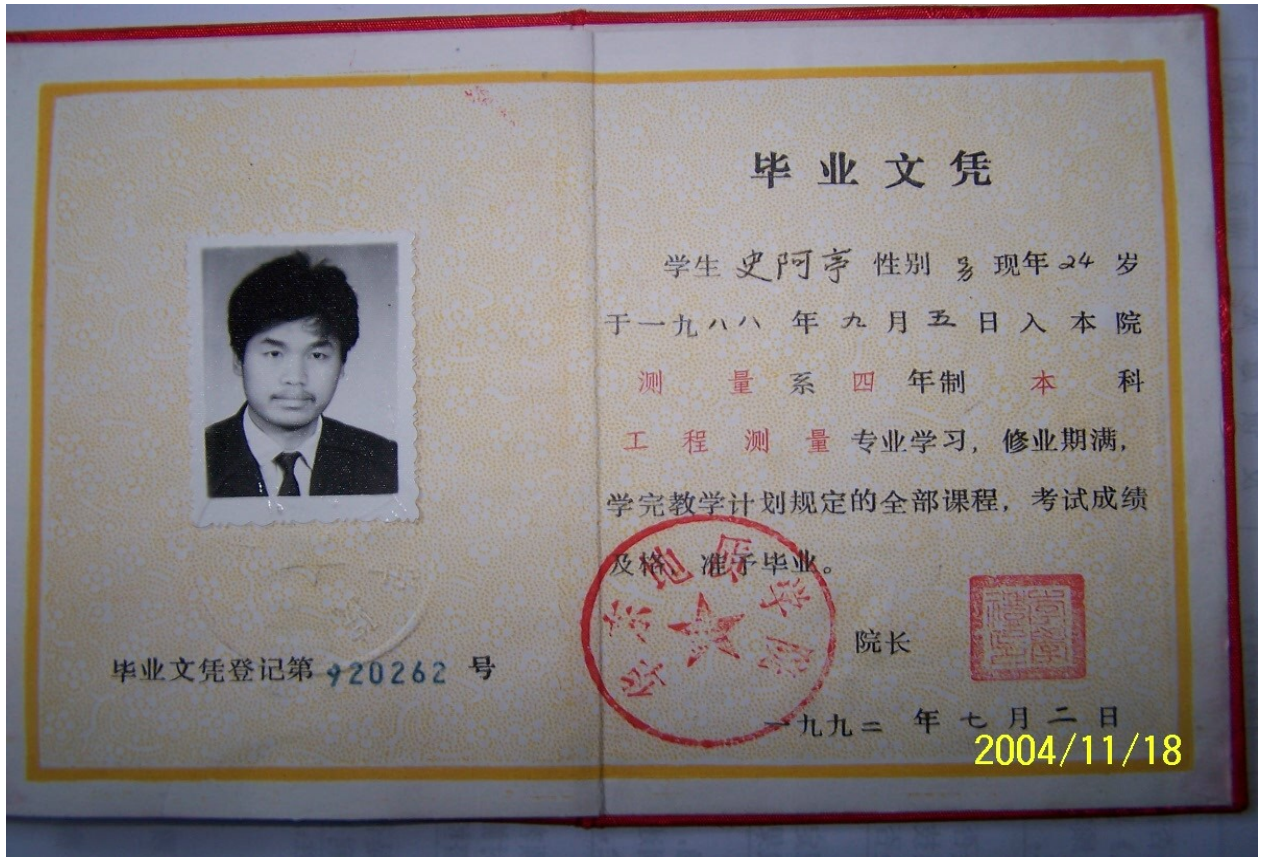 毕业文凭登记第 920262 号
毕业文凭
学生 史阿亭 性别 男 现年 24 岁
于一九八八 年 九 月 五 日 入 本 院
测 量 系 四 年制 本 科
工 程 测 量 专业学习，修业期满，
学完教学计划规定的全部课程，考试成绩
及格，准予毕业。
地质学院
院长
一九九二 年 七 月 二 日
2004/11/18